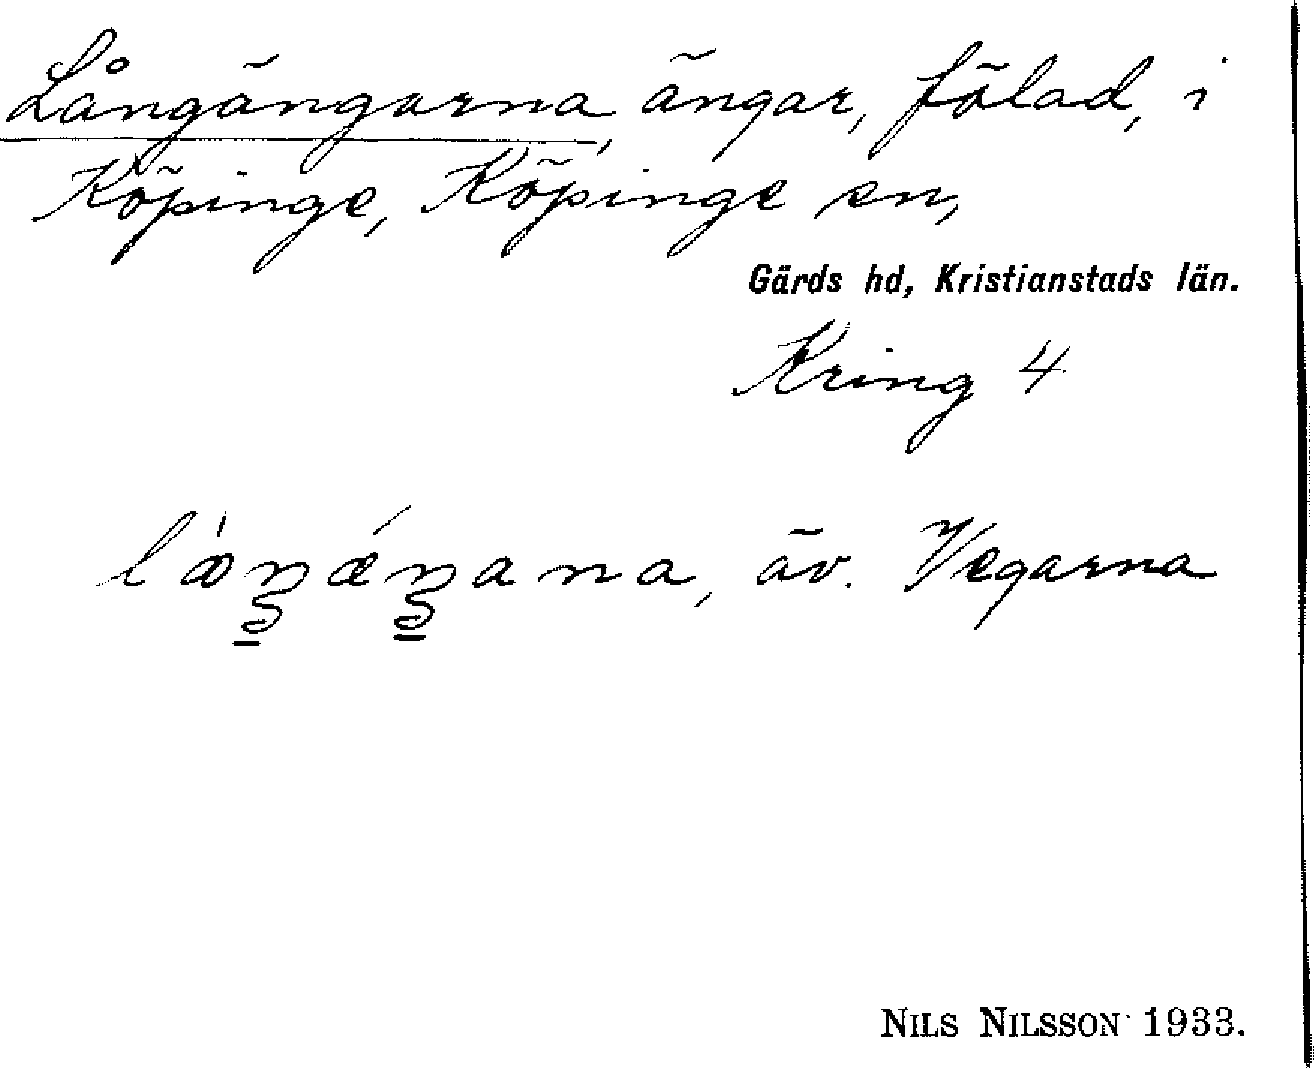 Långängarna, ängar, fölad, i
Köpinge, Köpinge sn,
Gärds hd, Kristianstads län.
Kring 4
äv. Vegarna
NILS NILSSON 1933.